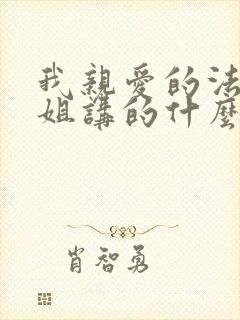 我親愛的法
姐講的什麼
肖智勇